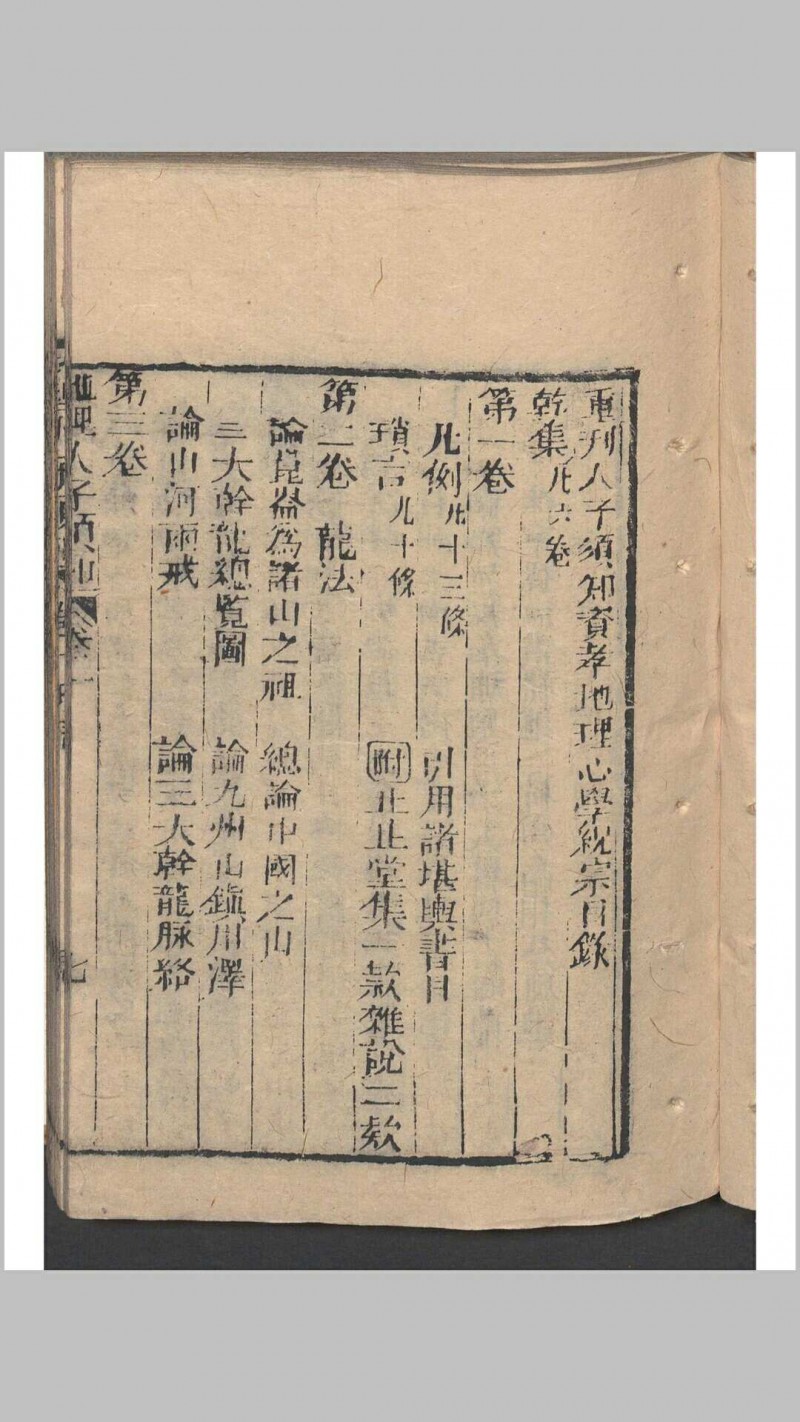 重刊人子須知資孝地理心學統宗目錄
乾集 凡六卷
第一卷
凡例 凡十三條 引用諸堪輿書目
瑣言 凡十條 附 止止堂集一款雜說二款
第二卷 龍法
論崑崙為諸山之祖 總論中國之山
三大幹龍總覽圖 論九州山鎮川澤
論山河兩戒 論三大幹龍脉絡
第三卷
地理人子須知 卷 七